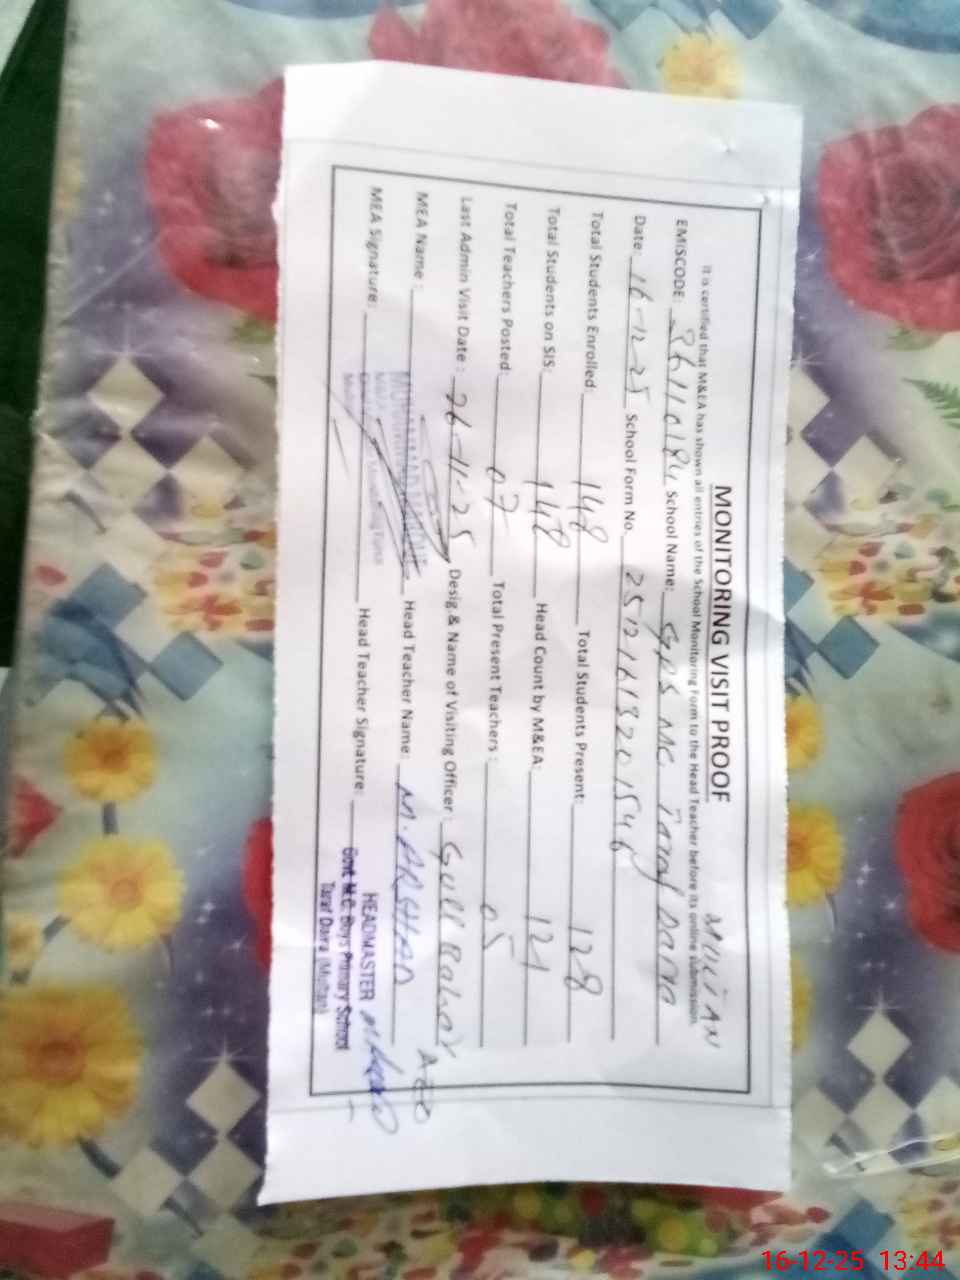 MONITORING VISIT PROOF
MULTAN
It is certified that M&EA has shown all entries of the School Monitoring Form to the Head Teacher before its online submission.
EMISCODE: School Name: GPS MC Taraf Daira
Date: 16-12-25 School Form No. 25121613201546
Total Students Enrolled: 148 Total Students Present: 128
Total Students on SIS: 148 Head Count by M&EA: 121
Total Teachers Posted: 07 Total Present Teachers: 05
Last Admin Visit Date: 26-11-25 Desig.& Name of Visiting Officer: AEO
MEA Name: MUHAMMAD Head Teacher Name: M.ARSHAD
MEA Signature: Head Teacher Signature:
HEADMASTER
Govt. M.C. Boys Primary School
Taraf Daira (Multan)
16-12-25 13:44